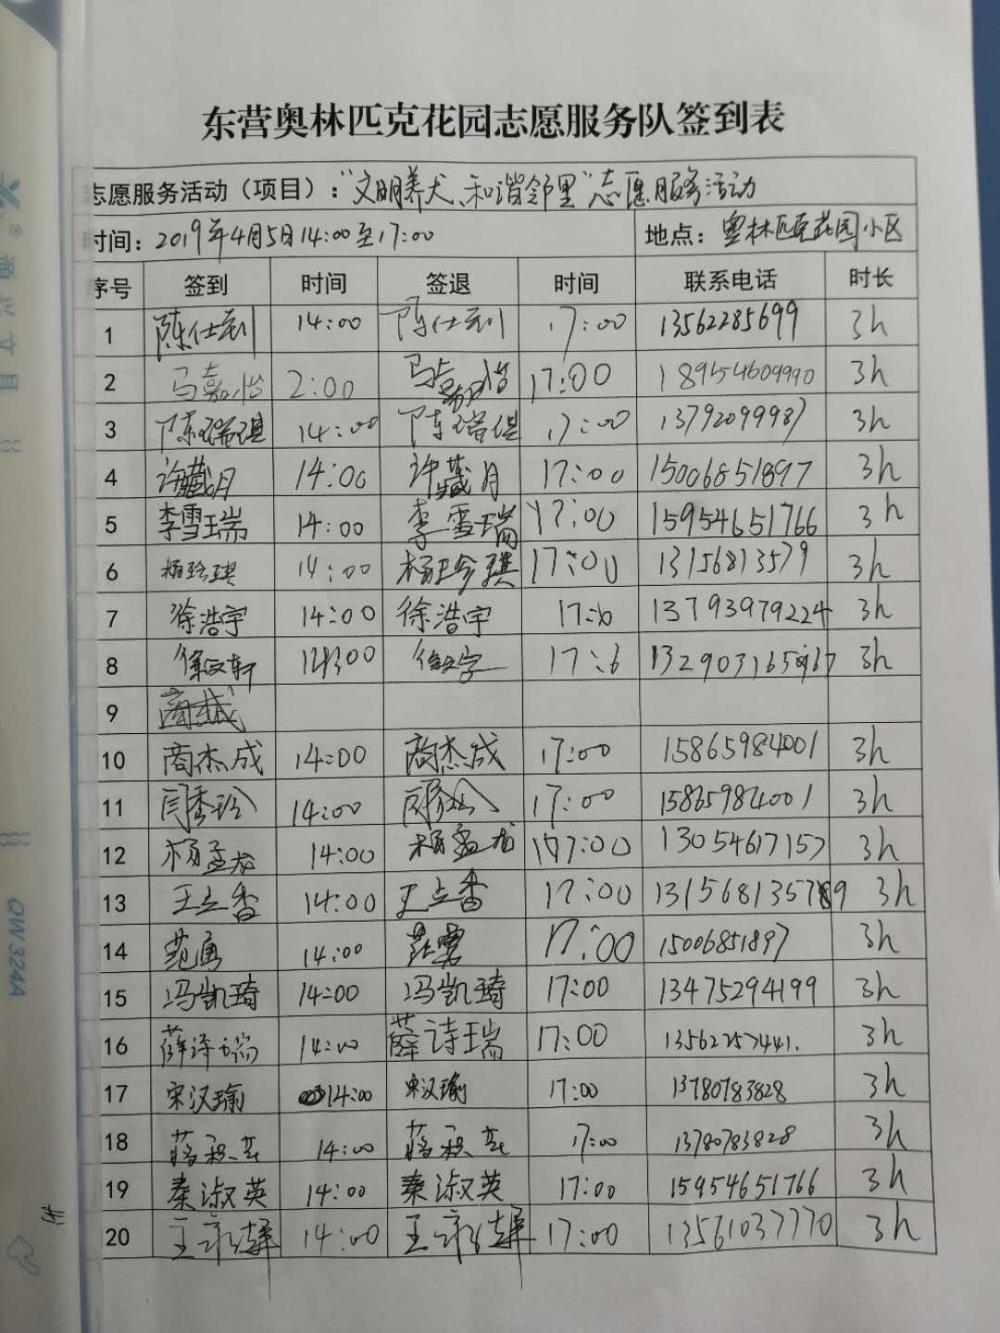 东营奥林匹克花园志愿服务队签到表
志愿服务活动（项目）：“文明养犬、和谐邻里”志愿服务活动
时间：2019年4月5日14:00至17:00 地点：奥林匹克花园小区
序号 签到 时间 签退 时间 联系电话 时长
1 陈仕 14:00 陈仕 17:00 13562285699 3h
2 马嘉怡 2:00 马嘉怡 17:00 18954609990 3h
3 陈瑞琪 14:00 陈瑞 17:00 13792099987 3h
4 许藏月 14:00 许藏月 17:00 15006851897 3h
5 李雪瑞 14:00 李雪瑞 17:00 15954651766 3h
6 杨珍琪 14:00 杨珍琪 17:00 13156813579 3h
7 徐浩宇 14:00 徐浩宇 17: 13793979224 3h
8 徐文轩 徐文 17: 3h
9
10 商杰成 14:00 商杰成 17:00 15865984001 3h
11 闫秀玲 14:00 17:00 15865984001 3h
12 杨孟龙 14:00 杨孟龙 17:00 13054617157 3h
13 王立香 14:00 王立香 17:00 3h
14 范勇 14:00 17:00 15006851897 3h
15 冯凯琦 14:00 冯凯琦 17:00 13475294199 3h
16 薛诗瑞 14:00 薛诗瑞 17:00 13562257441. 3h
17 宋汉瑜 14:00 宋汉瑜 17:00 13780783828 3h
18 蒋 14:00 蒋 17:00 13780783828 3h
19 秦淑英 14:00 秦淑英 17:00 15954651766 3h
20 王 14:00 王 17:00 13561037770 3h
QW324A